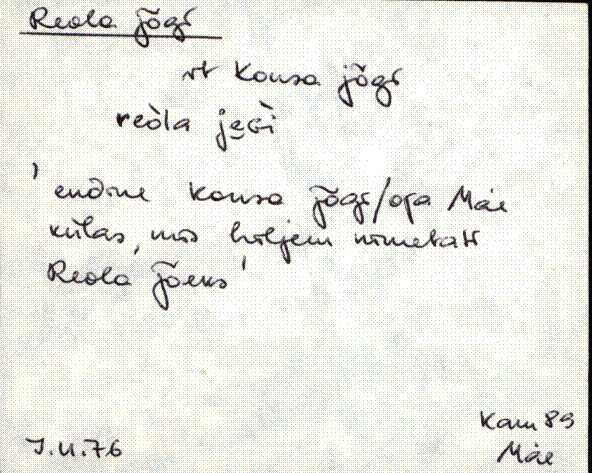 Reola jõgi
vt Konsa jõgi
reòla jęGì
'endine Konsa jõgi/oja Mäe
külas, mis hiljem nimetati
Reola jõeks'
Kam 89
J.U.76 Mäe